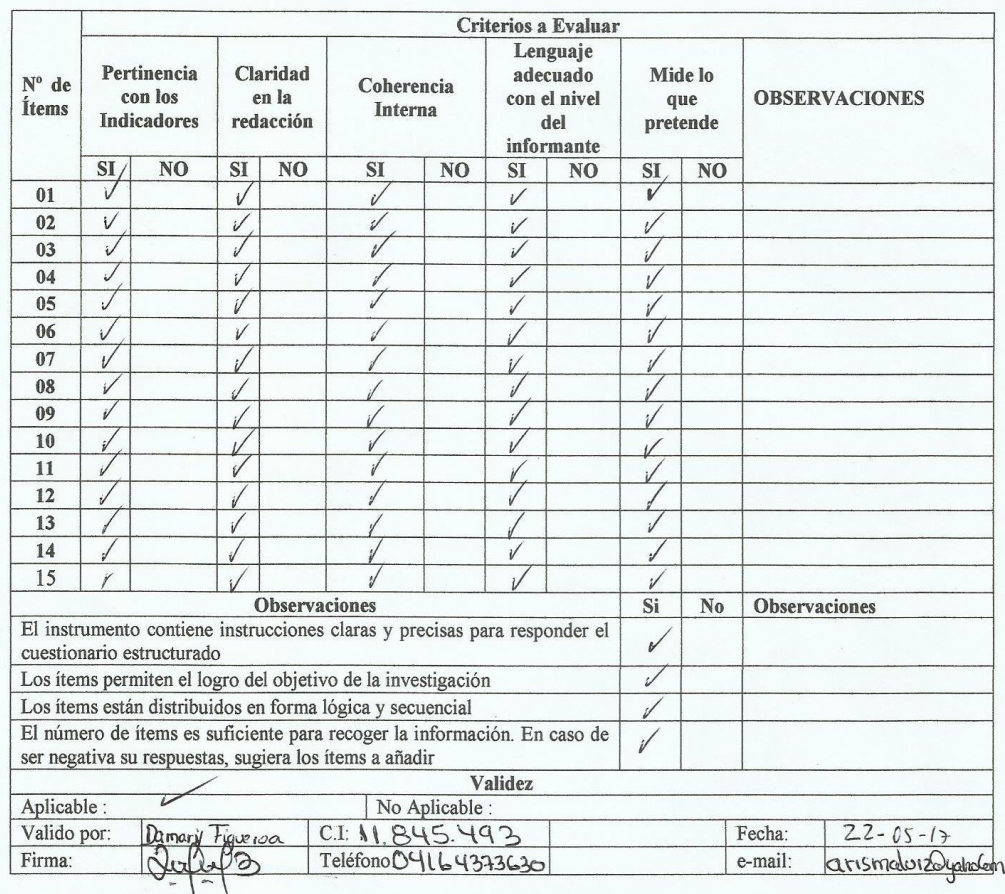 Criterios a Evaluar
Nº de Ítems
Pertinencia con los Indicadores
Claridad en la redacción
Coherencia Interna
Lenguaje adecuado con el nivel del informante
Mide lo que pretende
OBSERVACIONES
SI NO SI NO SI NO SI NO SI NO
01 ✓ ✓ ✓ ✓ ✓
02 ✓ ✓ ✓ ✓ ✓
03 ✓ ✓ ✓ ✓ ✓
04 ✓ ✓ ✓ ✓ ✓
05 ✓ ✓ ✓ ✓ ✓
06 ✓ ✓ ✓ ✓ ✓
07 ✓ ✓ ✓ ✓ ✓
08 ✓ ✓ ✓ ✓ ✓
09 ✓ ✓ ✓ ✓ ✓
10 ✓ ✓ ✓ ✓ ✓
11 ✓ ✓ ✓ ✓ ✓
12 ✓ ✓ ✓ ✓ ✓
13 ✓ ✓ ✓ ✓ ✓
14 ✓ ✓ ✓ ✓ ✓
15 ✓ ✓ ✓ ✓ ✓
Observaciones Si No Observaciones
El instrumento contiene instrucciones claras y precisas para responder el
cuestionario estructurado ✓
Los ítems permiten el logro del objetivo de la investigación ✓
Los ítems están distribuidos en forma lógica y secuencial ✓
El número de ítems es suficiente para recoger la información. En caso de
ser negativa su respuestas, sugiera los ítems a añadir ✓
Validez
Aplicable : ✓ No Aplicable :
Valido por: Damary Figueroa C.I: 11.845.493 Fecha: 22-05-17
Firma: Teléfono 04164373630 e-mail: